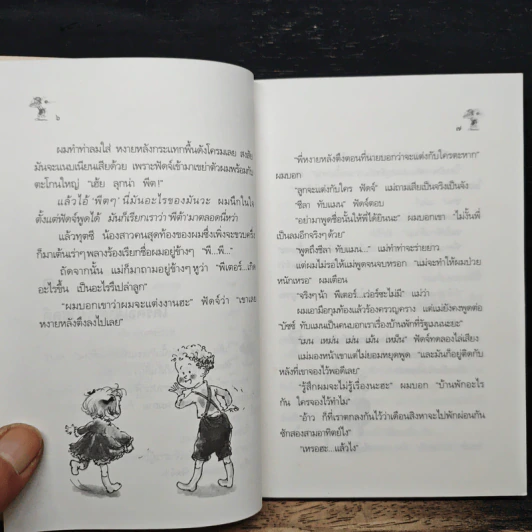 ๖
ผมทำท่าลมใส่ หงายหลังกระแทกพื้นดังโครมเลย
มันจะแนบเนียนเสียด้วย เพราะฟัดจ์เข้ามาเขย่าตัวผมพร้อมกับ
ตะโกนใหญ่ "เฮ้ย ลุกน่า พีต!"
แล้วไอ้ 'พีตๆ' นี่มันอะไรของมันวะ ผมนึกในใจ
ตั้งแต่ฟัดจ์พูดได้ มันก็เรียกเราว่า 'พีต้า' มาตลอดนี่หว่า
แล้วทุตซี น้องสาวคนสุดท้องของผมซึ่งเพิ่งจะขวบครึ่ง
ก็มาเต้นเร่าๆ พลางร้องเรียกชื่อผมอยู่ข้างๆ "พี...พี..."
ถัดจากนั้น แม่ก็มาถามอยู่ข้างๆ หูว่า "พีเตอร์...เกิด
อะไรขึ้น เป็นอะไรรึเปล่าลูก"
"ผมบอกเขาว่าผมจะแต่งงานฮะ" ฟัดจ์ว่า "เขาเลย
หงายหลังตึงลงไปเลย"
๗
"พี่หงายหลังตึงตอนที่นายบอกว่าจะแต่งกับใครตะหาก"
ผมบอก
"ลูกจะแต่งกับใคร ฟัดจ์" แม่ถามเสียเป็นจริงเป็นจัง
"ชีลา ทับแมน" ฟัดจ์ตอบ
"อย่ามาพูดชื่อนั้นให้พี่ได้ยินนะ" ผมบอกเขา "ไม่งั้นพี่
เป็นลมอีกจริงๆ ด้วย"
"พูดถึงชีลา ทับแมน..." แม่ทำท่าจะร่ายยาว
แต่ผมไม่รอให้แม่พูดจนจบหรอก "แม่จะทำให้ผมป่วย
หนักเหรอ" ผมเตือน
"จริงๆ น้า พีเตอร์...เว่อร์ซะไม่มี" แม่ว่า
ผมเอามือกุมท้องแล้วร้องครวญคราง แต่แม่ยังคงพูดต่อ
"บัซซ์ ทับแมนเป็นคนบอกเราเรื่องบ้านพักที่รัฐเมนนะยะ"
"เมน เหม่น เม่น เม้น เหม็น" ฟัดจ์ทดลองไล่เสียง
แม่มองหน้าเขาแต่ไม่ยอมหยุดพูด "และมันก็อยู่ติดกับ
หลังที่เขาจองไว้พอดีเลย"
"รู้สึกผมจะไม่รู้เรื่องนะฮะ" ผมบอก "บ้านพักอะไร
กัน ใครจองไว้ทำไม"
"อ้าว ก็ที่เราตกลงกันไว้ว่าเดือนสิงหาจะไปพักผ่อนกัน
ซักสองสามอาทิตย์ไง"
"เหรอฮะ...แล้วไง"